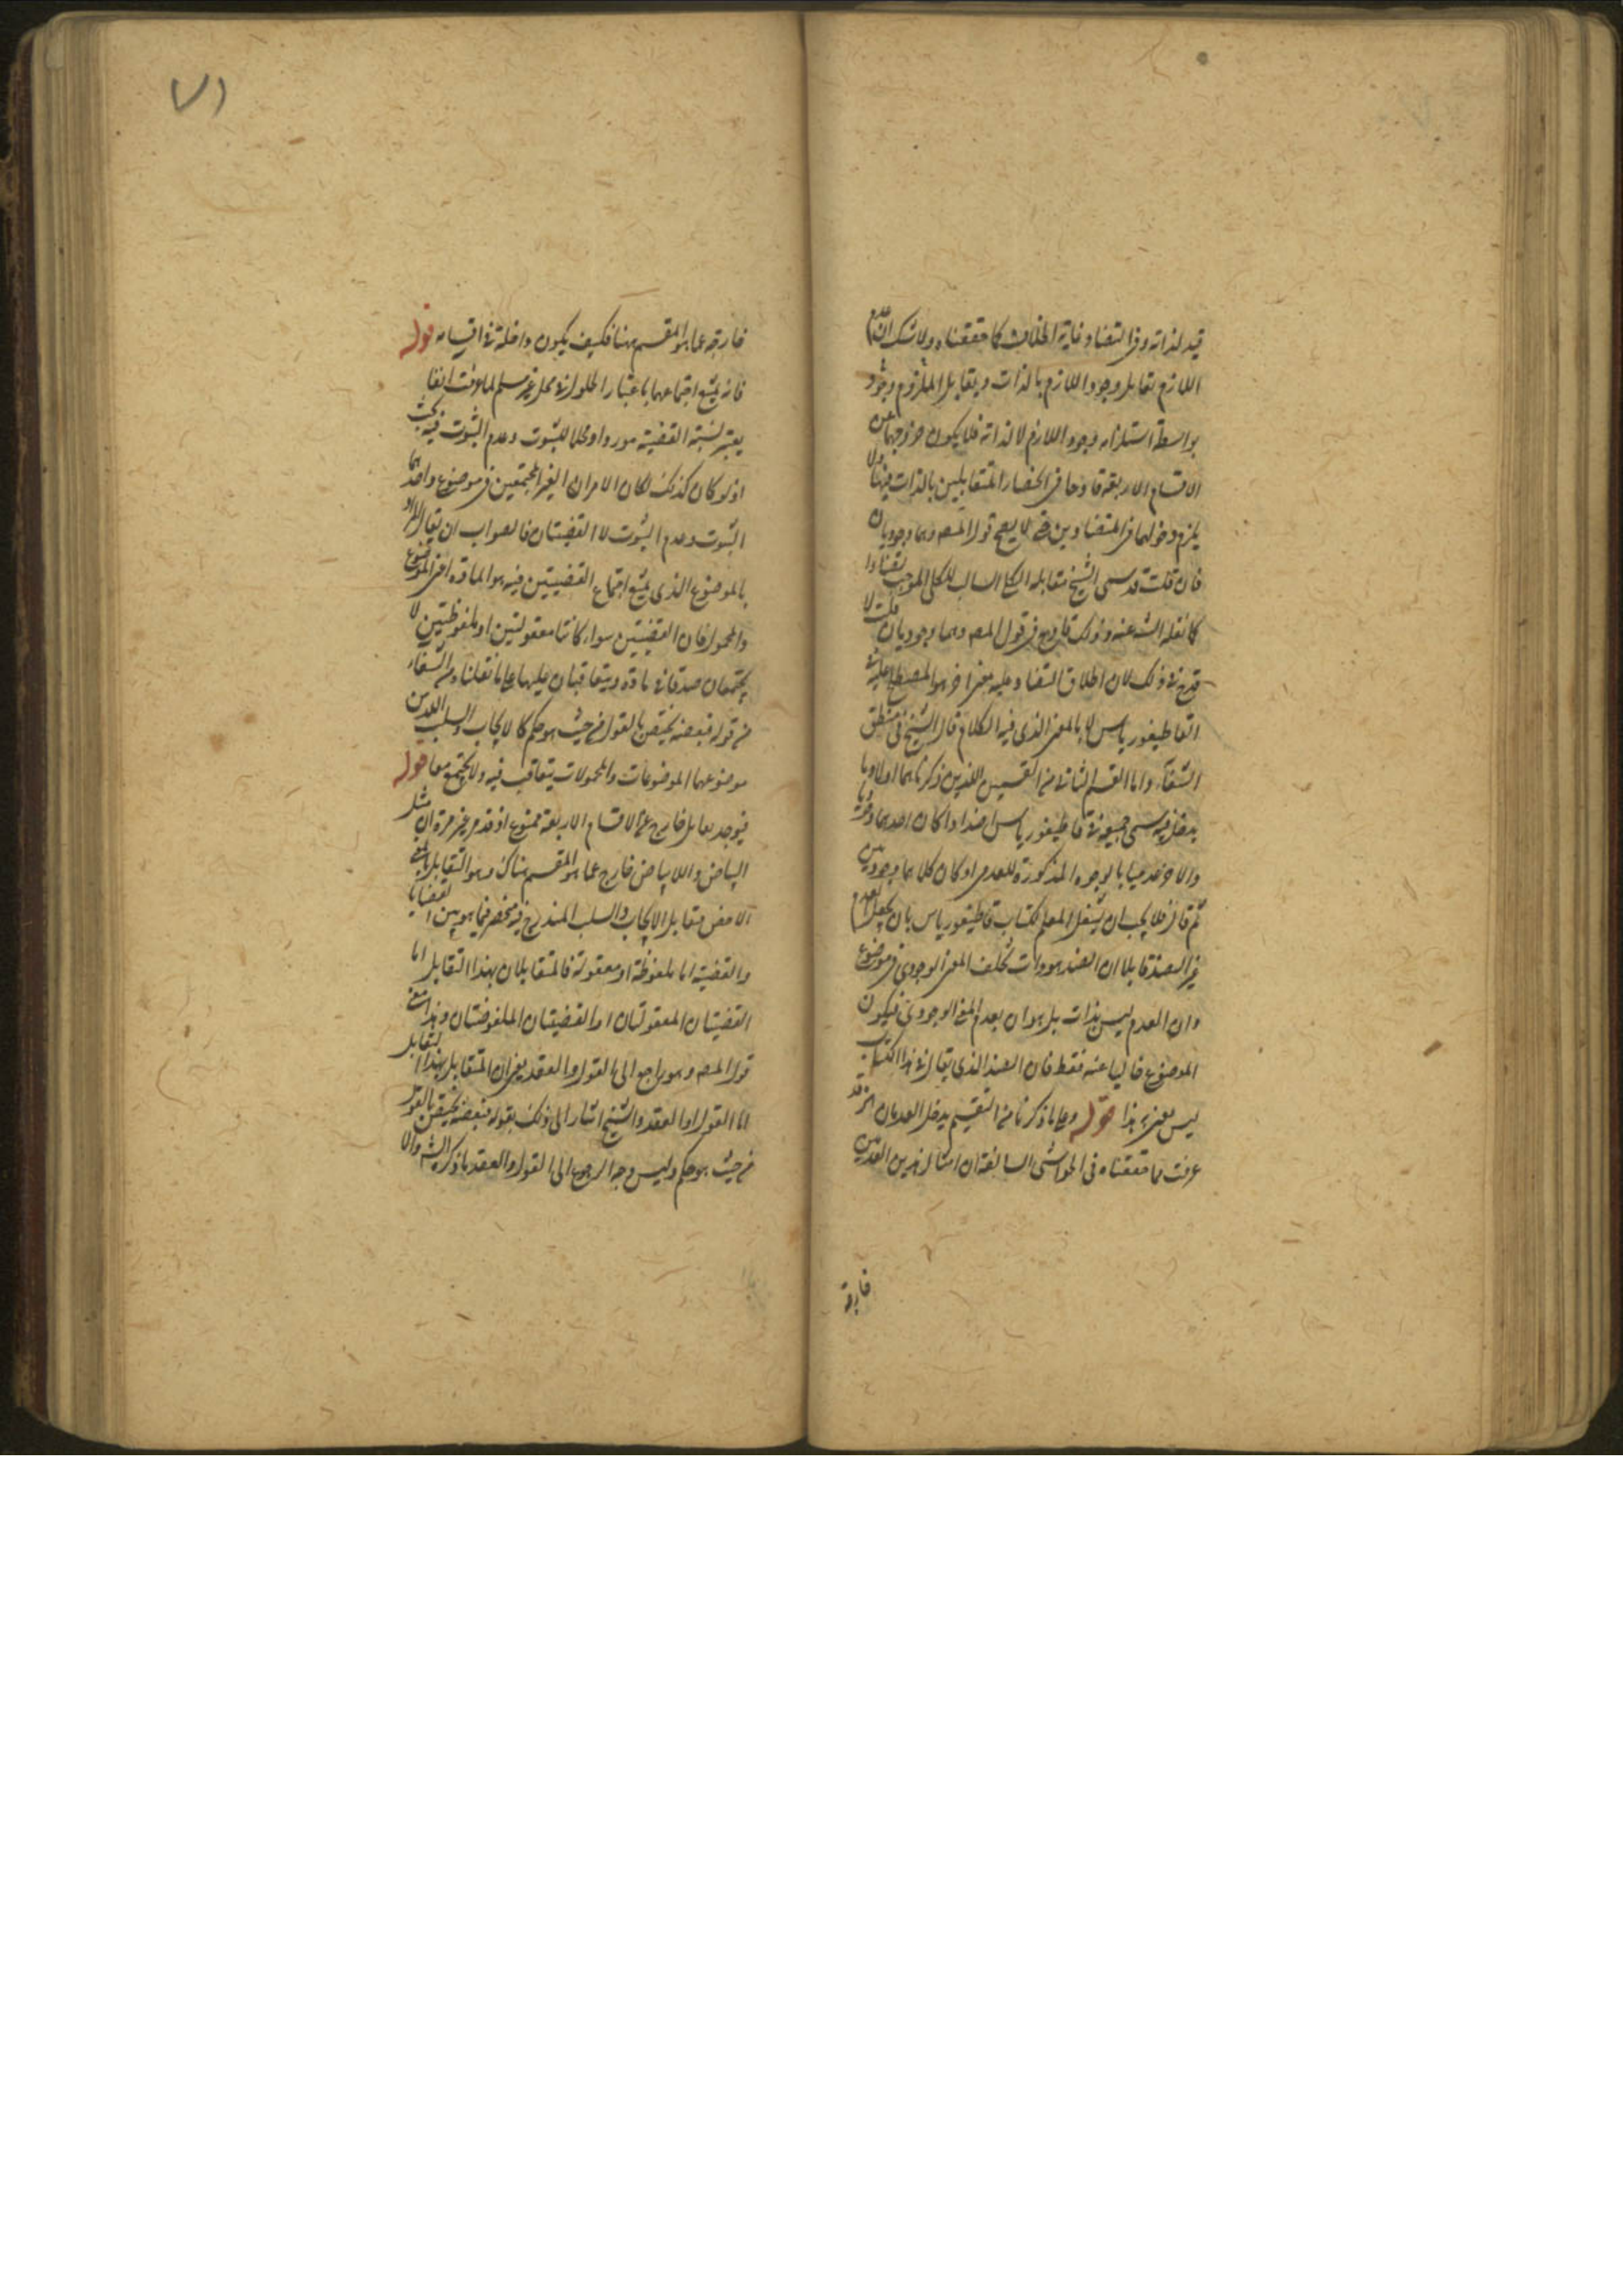 قيد لذاته وفي التضاد غاية الخلاف كما حققناه ولا شك ان عدم
اللازم تقابل وجود اللازم بالذات ويقابل الملزوم وجود
بواسطة استلزامه وجود اللازم لا لذاته فلا يكون خروجهما عن
الاقسام الاربعة قادحا في انحصار المتقابلين بالذات فيها ولا
يلزم دخولهما في المتضادين حتى لا يصح قول المصـ وهما وجوديان
فان قلت قد سمى الشيخ مقابلة الكلي السالب للكلي الموجب تضادا
كما نقله الشـ عنه وذلك قادح في قول المصـ وهما وجوديان قلت لا
قدح في ذلك لان اطلاق التضاد عليه بمعنى اخر هو المصطلح عليه في
القاطيغورياس لا بالمعنى الذي فيه الكلام قال الشيخ في منطق
الشفاء واما القسم الثاني من القسمين اللذين ذكرناهما اولا وما
يدخل فيه سمى جميعه في قاطيغورياس اضدادا كان احدهما وجوديا
والاخر عدميا بالوجوه المذكورة للعدمى او كان كلاهما وجوديين
ثم قال فلا يجب ان يشغل المعلم لكتاب قاطيغورياس بان يجعل العدم
غير الضد قابلا ان الضد هو ذات تخلف المعنى الوجودي في موضوع
وان العدم ليس بذات بل هو ان يعدم المعنى الوجودي فيكون
الموضوع خاليا عنه فقط فان الضد الذي يقال في هذا الكتاب
ليس يعنى به هذا قوله وعلى ما ذكرنا من التقسيم يدخل العدمان الخ قد
عرفت مما حققناه في الحواشى السابقة ان امثال هذين العدمين
خارجة
خارجة عما هو المقسم ههنا فكيف يكون داخلة في اقسامه قوله
فانه يمتنع اجتماعهما باعتبار الحلول في محل غير مسلم لما عرفت انفا
يعتبر نسبة القضية موردا ومحلا للثبوت وعدم الثبوت فيه بحث
اذ لو كان كذلك لكان الامران الغير المجتمعين في موضوع واحد هما
الثبوت وعدم الثبوت لا القضيتان فالصواب ان يقال المراد
بالموضوع الذي يمتنع اجتماع القضيتين فيه هو المادة اعنى الموضوع
والمحمول فان القضيتين سواء كانتا معقولتين او ملفوظتين لا
يجتمعان صدقا في مادة ويتعاقبان عليها على ما نقلناه من الشفاء
من قوله فبعضه يختص بالقول من حيث هو حكم كالايجاب والسلب الذين
موضوعهما الموضوعات والمحمولات يتعاقب فيه ولا يجتمع معا قوله
فيوجد تقابل خارج عن الاقسام الاربعة ممنوع اذ قد مر غير مرة ان مثل
البياض واللابياض خارج عما هو المقسم هناك وهو التقابل بالمعنى
الاخص فتقابل الايجاب والسلب المندرج فيه منحصر فيما هو بين القضايا
والقضية اما ملفوظة او معقولة فالمتقابلان بهذا التقابل اما
القضيتان المعقولتان او القضيتان الملفوظتان وهذا معنى
قول المصـ وهو راجع الى القول والعقد يعنى ان المتقابل بهذا التقابل
اما القول او العقد والشيخ اشار الى ذلك بقوله فبعضه يختص بالقول
من حيث هو حكم وليس وجه الرجوع الى القول والعقد ما ذكره الشـ والا